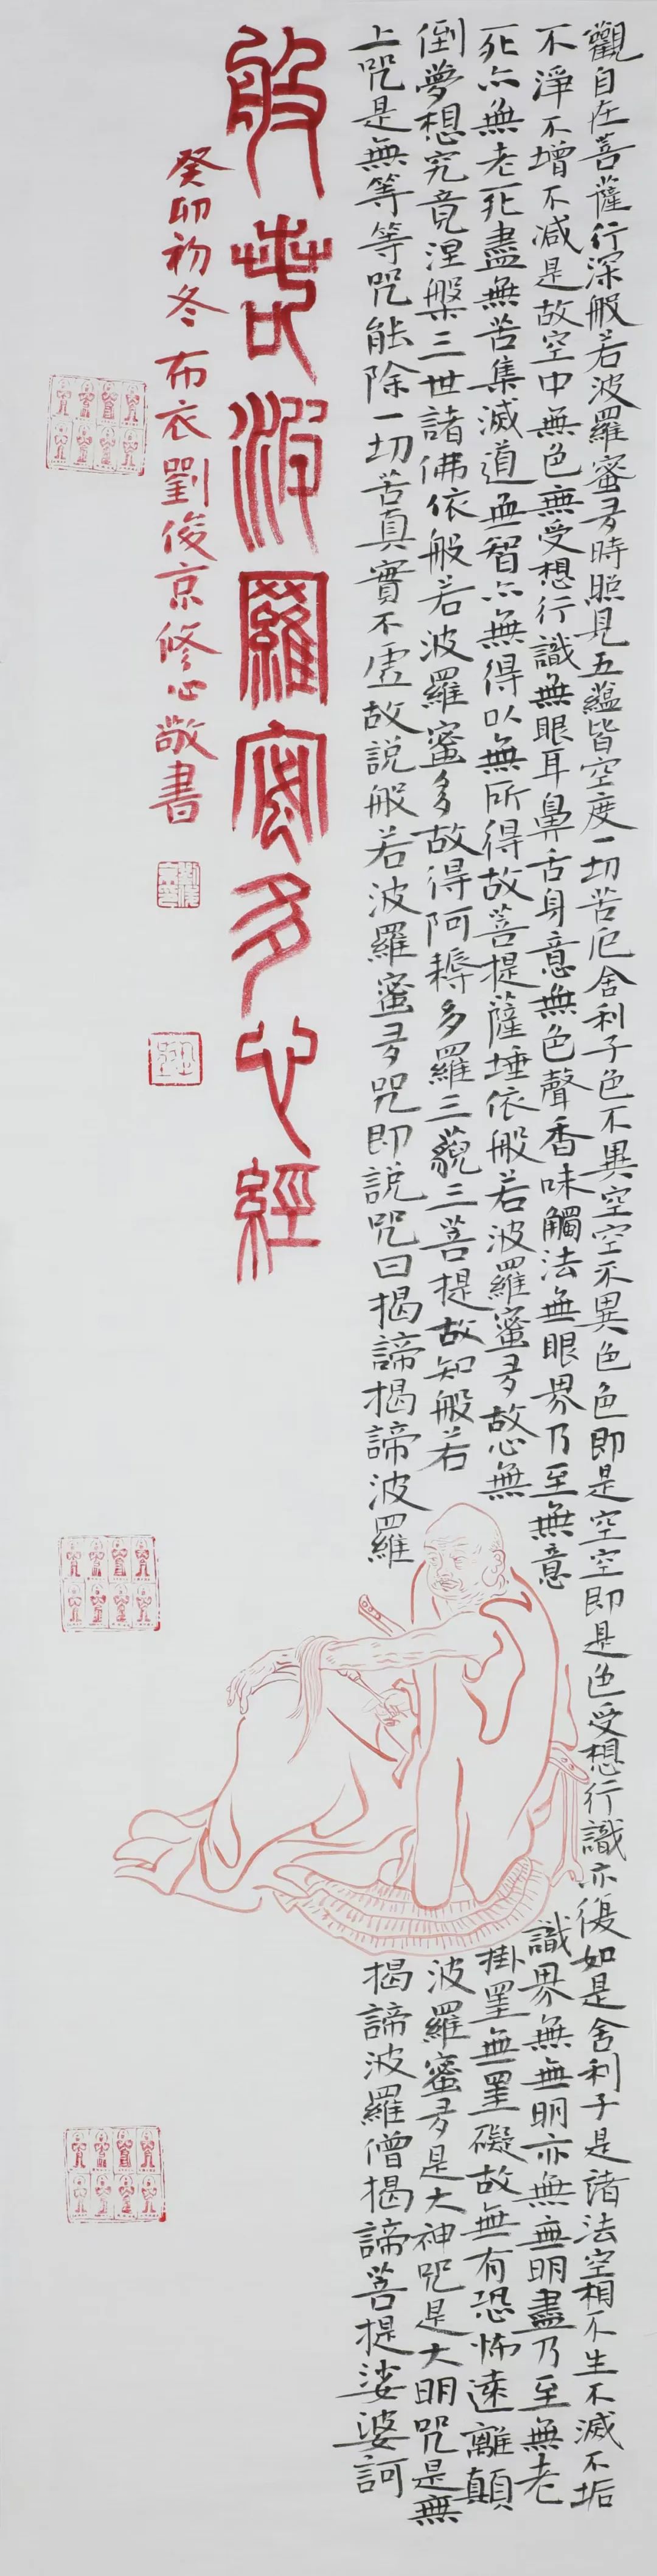 觀自在菩薩行深般若波羅蜜多時照見五蘊皆空度一切苦厄舍利子色不異空空不異色色即是空空即是色受想行識亦復如是舍利子是諸法空相不生不滅不垢
不淨不增不減是故空中無色無受想行識無眼耳鼻舌身意無色聲香味觸法無眼界乃至無意識界無無明亦無無明盡乃至無老
死亦無老死盡無苦集滅道無智亦無得以無所得故菩提薩埵依般若波羅蜜多故心無掛罣無罣礙故無有恐怖遠離顛
倒夢想究竟涅槃三世諸佛依般若波羅蜜多故得阿耨多羅三藐三菩提故知般若波羅蜜多是大神咒是大明咒是無
上咒是無等等咒能除一切苦真實不虛故說般若波羅蜜多咒即說咒曰揭諦揭諦波羅揭諦波羅僧揭諦菩提娑婆訶
般若波羅蜜多心經
癸卯初冬布衣劉俊京修心敬書